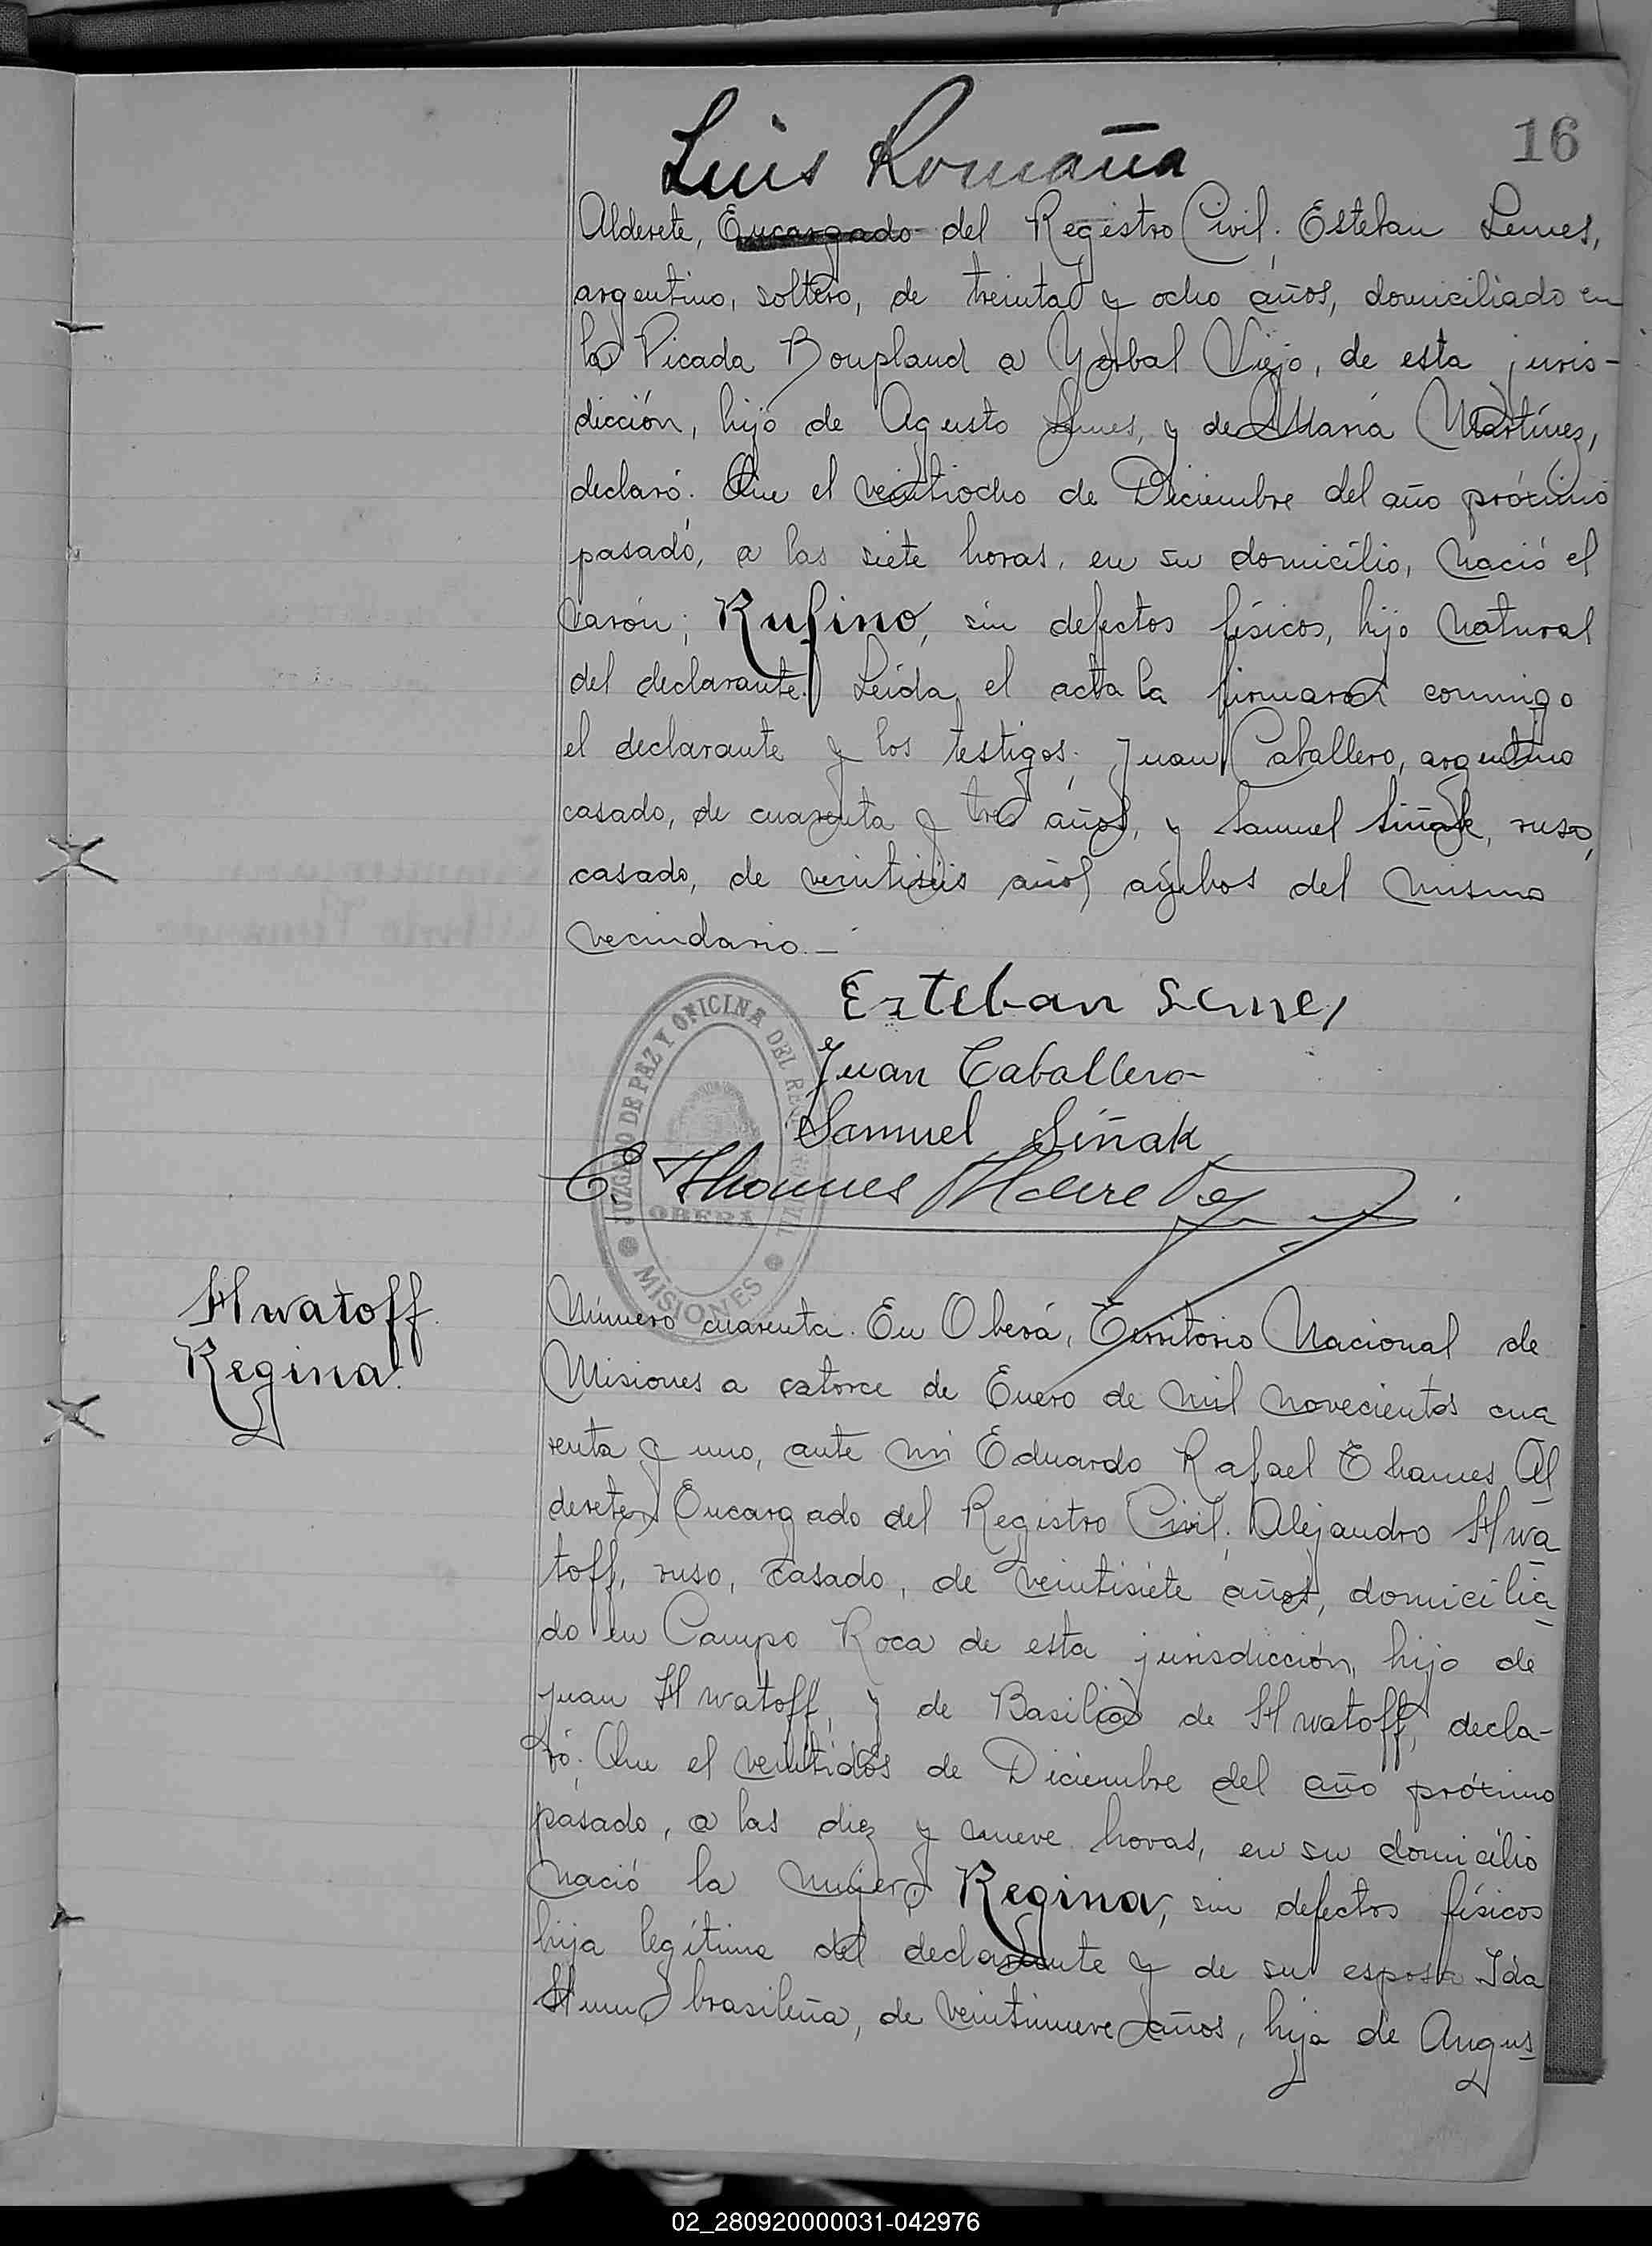 16
Luis Romaña
Alderete, Encargado del Registro Civil; Esteban Lemes,
argentino, soltero, de treinta y ocho años, domiciliado en
la Picada Boupland a Yerbal Viejo, de esta juris-
dicción, hijo de Agusto Lemes, y de María Martínez,
declaró: Que el veintiocho de Diciembre del año próximo
pasado, a las siete horas, en su domicilio, nació el
varón; Rufino, sin defectos físicos, hijo natural
del declarante. Leída el acta la firmaron conmigo
el declarante y los testigos; Juan Caballero, argentino
casado, de cuarenta y tres años, y Samuel Siñak, ruso,
casado, de veintiseis años, ambos del mismo
vecindario.—
Esteban Lemes
Juan Caballero
Samuel Siñak
E. Thames Alderete
JUZGADO DE PAZ Y OFICINA DEL REG. CIVIL
OBERÁ
MISIONES
Hwatoff
Regina.
Número cuarenta. En Oberá, Territorio Nacional de
Misiones a catorce de Enero de mil novecientos cua
renta y uno, ante mí Eduardo Rafael Thames Al
derete, Encargado del Registro Civil; Alejandro Hwa
toff, ruso, casado, de veintisiete años, domicilia
do en Campo Roca de esta jurisdicción, hijo de
Juan Hwatoff, y de Basilia de Hwatoff, decla-
ró: Que el veintidós de Diciembre del año próximo
pasado, a las diez y nueve horas, en su domicilio
nació la mujer, Regina, sin defectos físicos
hija legítima del declarante y de su esposa Ida
brasileña, de veintinueve años, hija de Augus
02_280920000031-042976